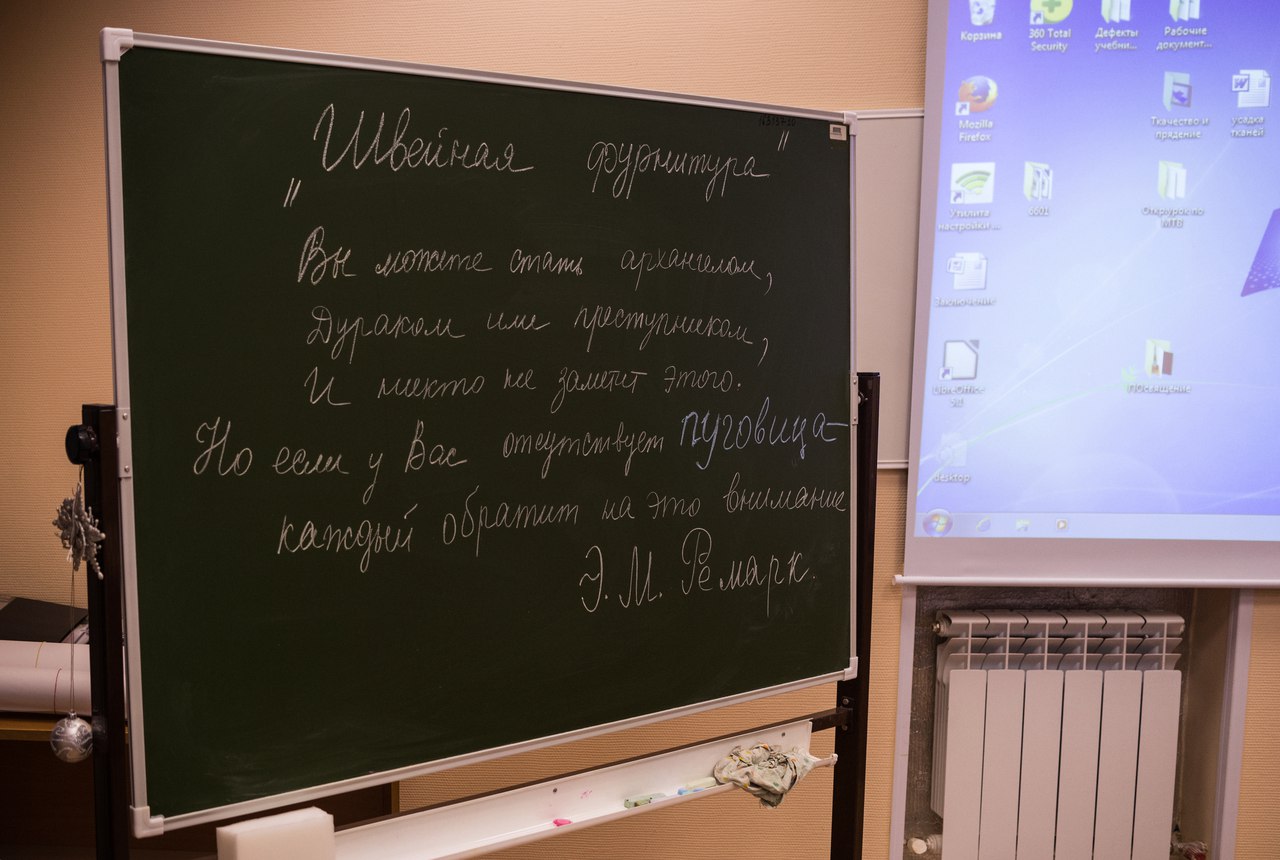 "Швейная фурнитура"
Вы можете стать архангелом,
Дураком или преступником,
И никто не заметит этого.
Но если у Вас отсутствует пуговица-
каждый обратит на это внимание
Э. М. Ремарк.
Корзина
360 Total Security
Дефекты учебни...
Рабочие документ...
Mozilla Firefox
Ткачество и прядение
усадка тканей
Утилита настройки ...
6601
Откр.урок по МТВ
Заключение
LibreOffice
Посвящение
desktop